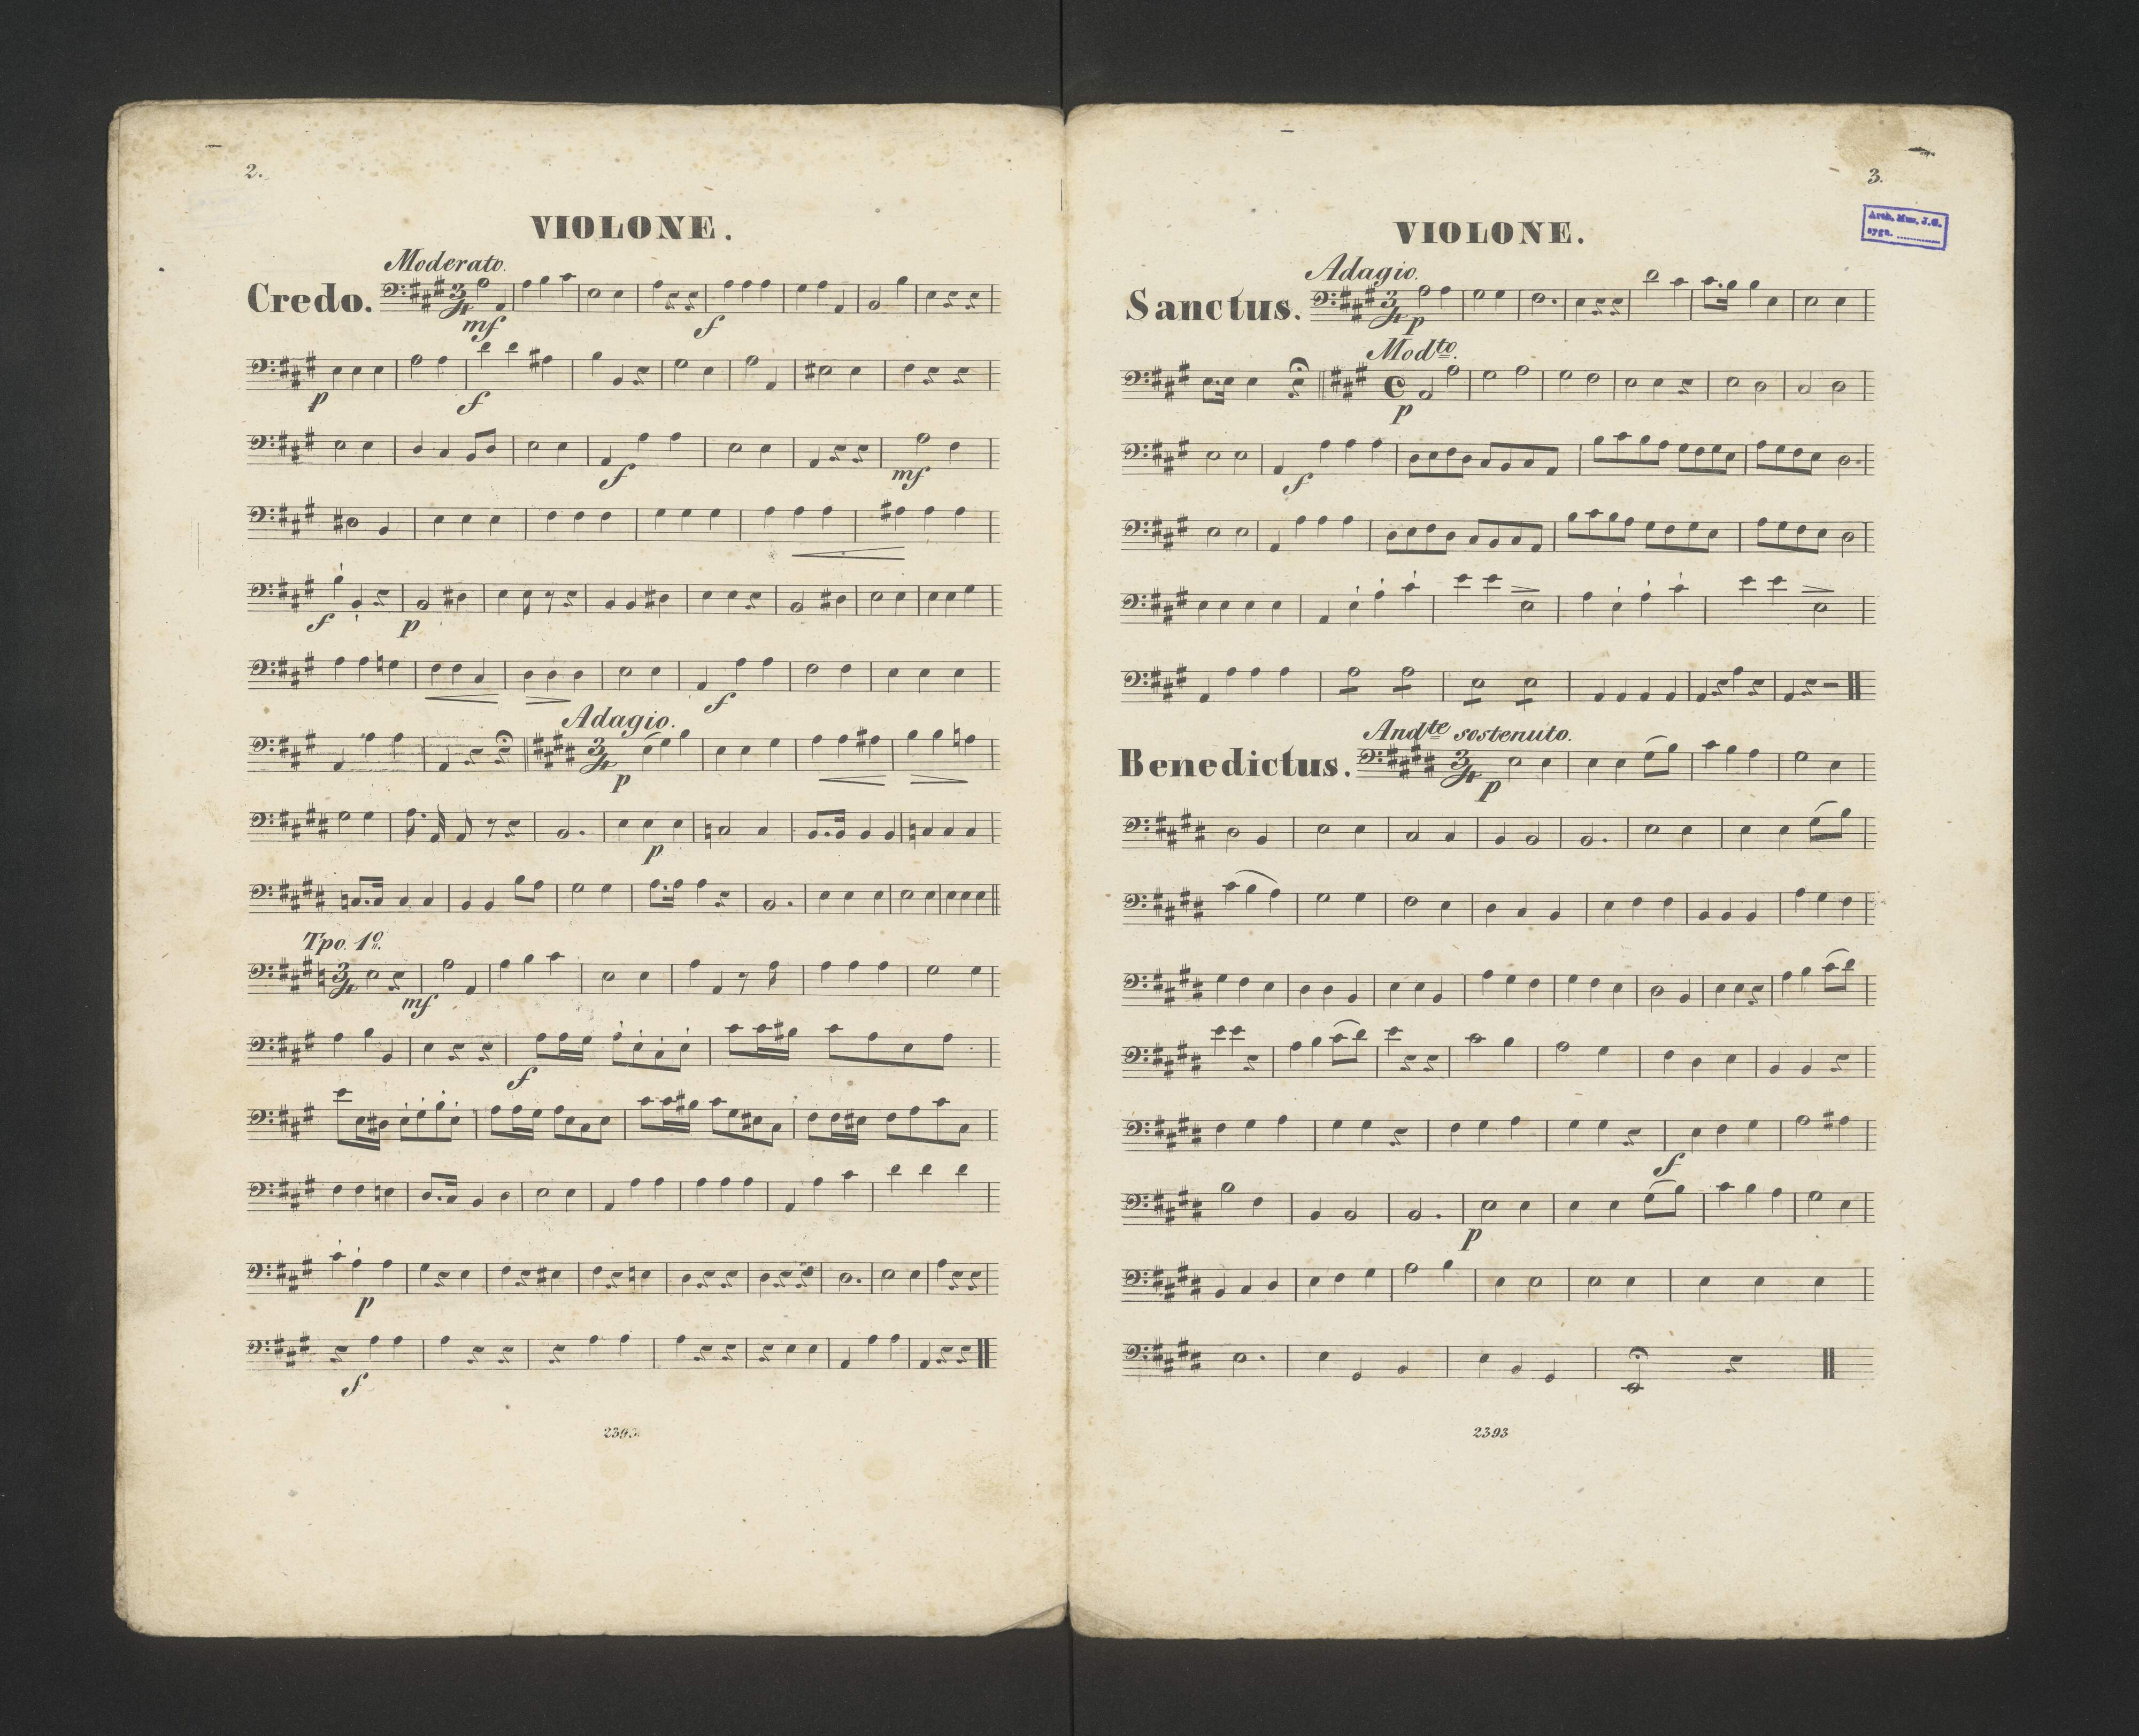 2.
VIOLONE.
Moderato.
Credo.
mf
f
p
f
f
mf
f
p
f
Adagio.
p
p
Tpo. 1º
mf
f
p
f
2393
3.
Arch. Muz. J.G.
sygn. ............
VIOLONE.
Adagio.
Sanctus.
p
Modto.
p
f
Andte sostenuto.
Benedictus.
p
f
p
2393